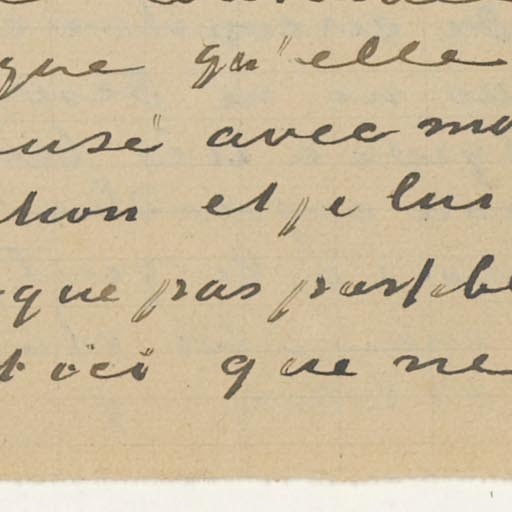 que qu'elle
usé avec mo
tion et je lui
que pas possibl
t ici que ne